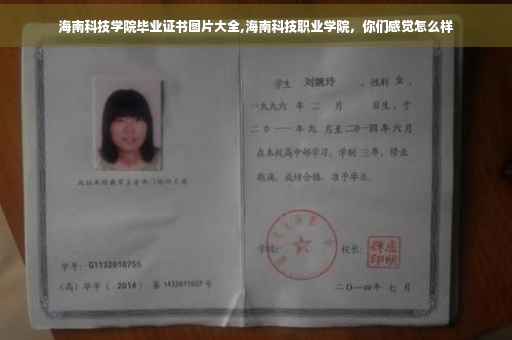 海南科技学院毕业证书图片大全,海南科技职业学院，你们感觉怎么样
学生 刘婉玲 ，性别 女 ，
一九九六 年 二 月 日生，于
二〇一一 年 九 月至 二〇一四 年 六 月
在本校高中部学习，学制 三 年，修业
期满，成绩合格，准予毕业。
学号： G1132010755
(高) 毕字 ( 2014 ) 第 1432011027 号
学校：
校长：
二〇一四年 七 月